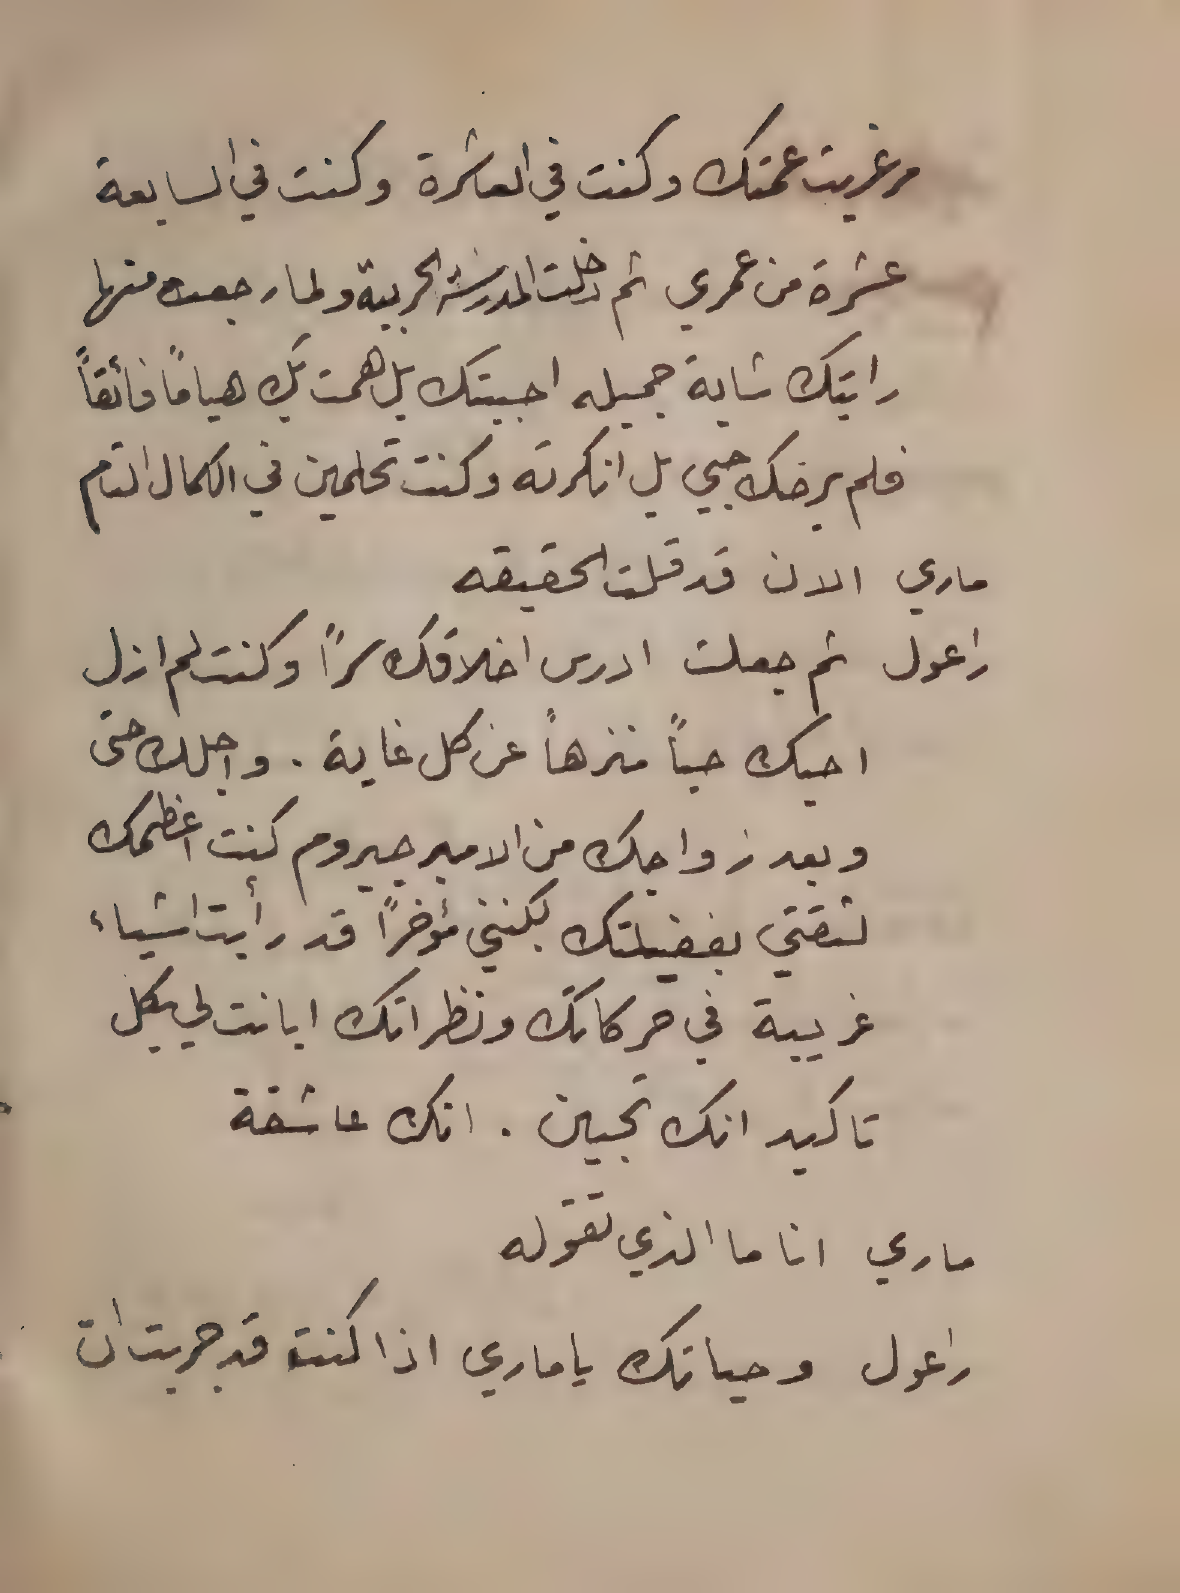 مرغريت عمتك وكنت في العاشرة وكنت في السابعة
عشرة من عمري ثم دخلت المدرسة الحربية ولما رجعت منها
رايتك شابة جميله احببتك بل همت بك هياماً فائقاً
فلم يرضك حبي بل انكرته وكنت تحلمين في الكمال التام
ماري الان قد قلت الحقيقه
راعول ثم جعلت ادرس اخلاقك سراً وكنت لم ازل
احبك حباً منزهاً عن كل غاية . واجلك حتى
وبعد زواجك من الامير جيروم كنت اعظمك
لثقتي بفضيلتك لكنني مؤخراً قد رأيت اشياء
غريبة في حركاتك ونظراتك ابانت لي بكل
تاكيد انك تحبين . انك عاشقة
ماري انا ما الذي تقوله
راعول وحياتك يا ماري اذا كنت قد جربت ان